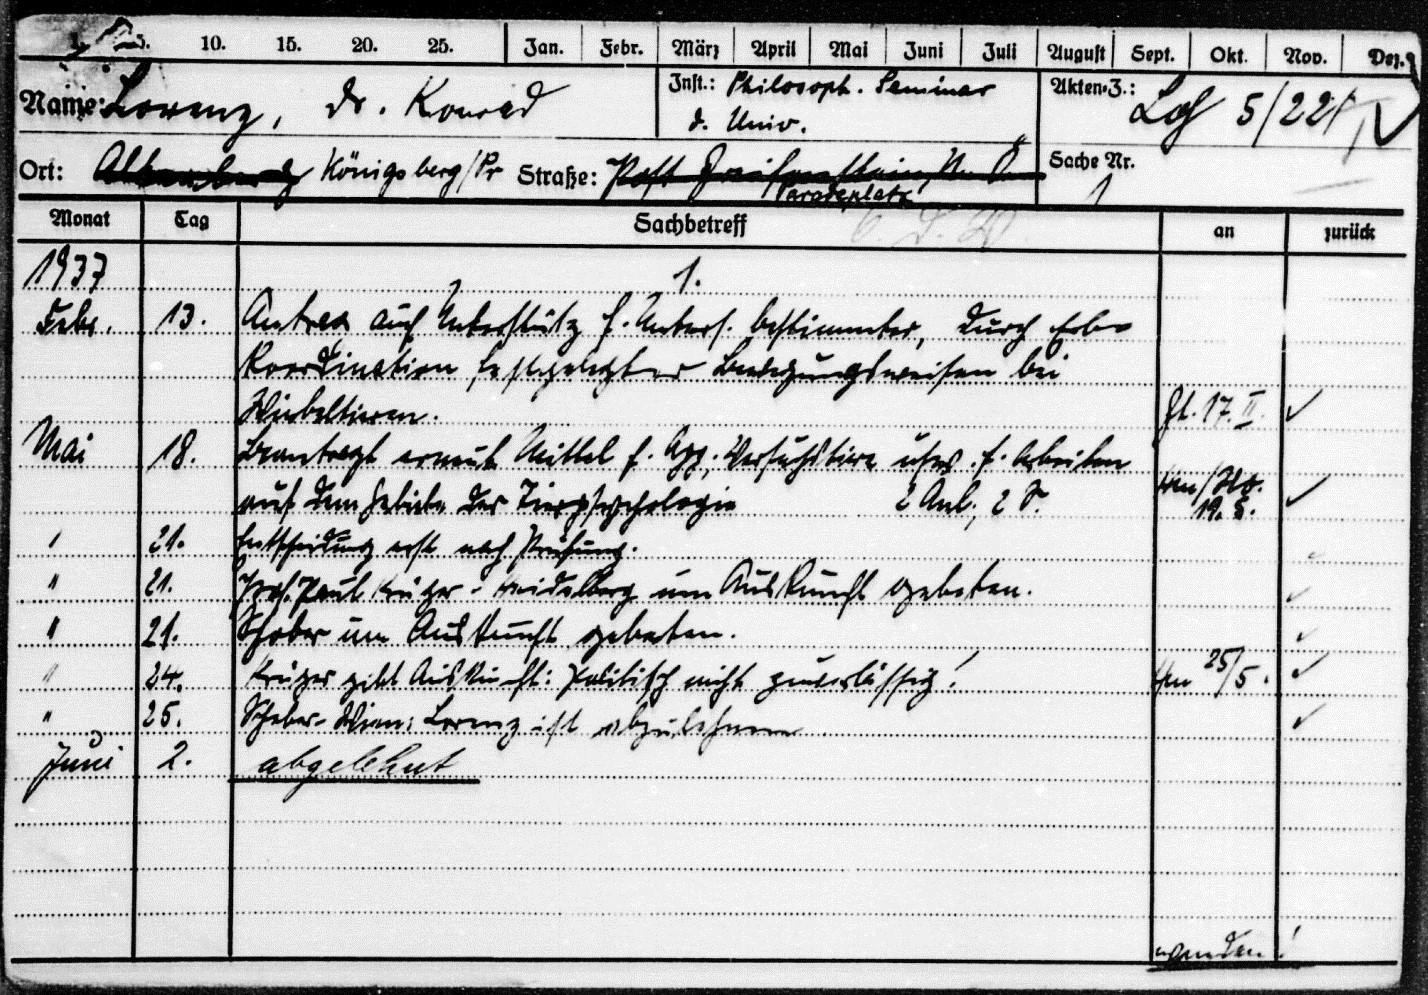 10. 15. 20. 25. Jan. Febr. März April Mai Juni Juli August Sept. Okt. Nov. Dez.
Name: Lorenz, Dr. Konrad Inst.: Philosoph. Seminar d. Univ. Akten-Z.: Lo 5/22/1
Ort: Altenberg Königsberg/Pr Straße: Post Greifenstein, N. Ö. Paradeplatz Sache Nr. 1
Monat Tag Sachbetreff an zurück
1937 1.
Febr. 13. Antrag auf Unterstütz f. Unters. bestimmter, durch Erb-
Koordination festgelegter Bewegungsweisen bei
Wirbeltieren. 17. II.
Mai 18. Beantragt erneut Mittel f. App., Versuchstiere usw. f. Arbeiten
auf dem Gebiete der Tierpsychologie 2 Anl., 2 S. 19. 5.
" 21. Entscheidung erst nach Prüfung.
" 21. Prof. Paul Krüger - Heidelberg um Auskunft gebeten.
" 21. Schober um Auskunft gebeten.
" 24. Krüger gibt Auskunft: Politisch nicht zuverlässig! 25/5.
" 25. Schober-Wien: Lorenz ist abzulehnen
Juni 2. abgelehnt
wenden!